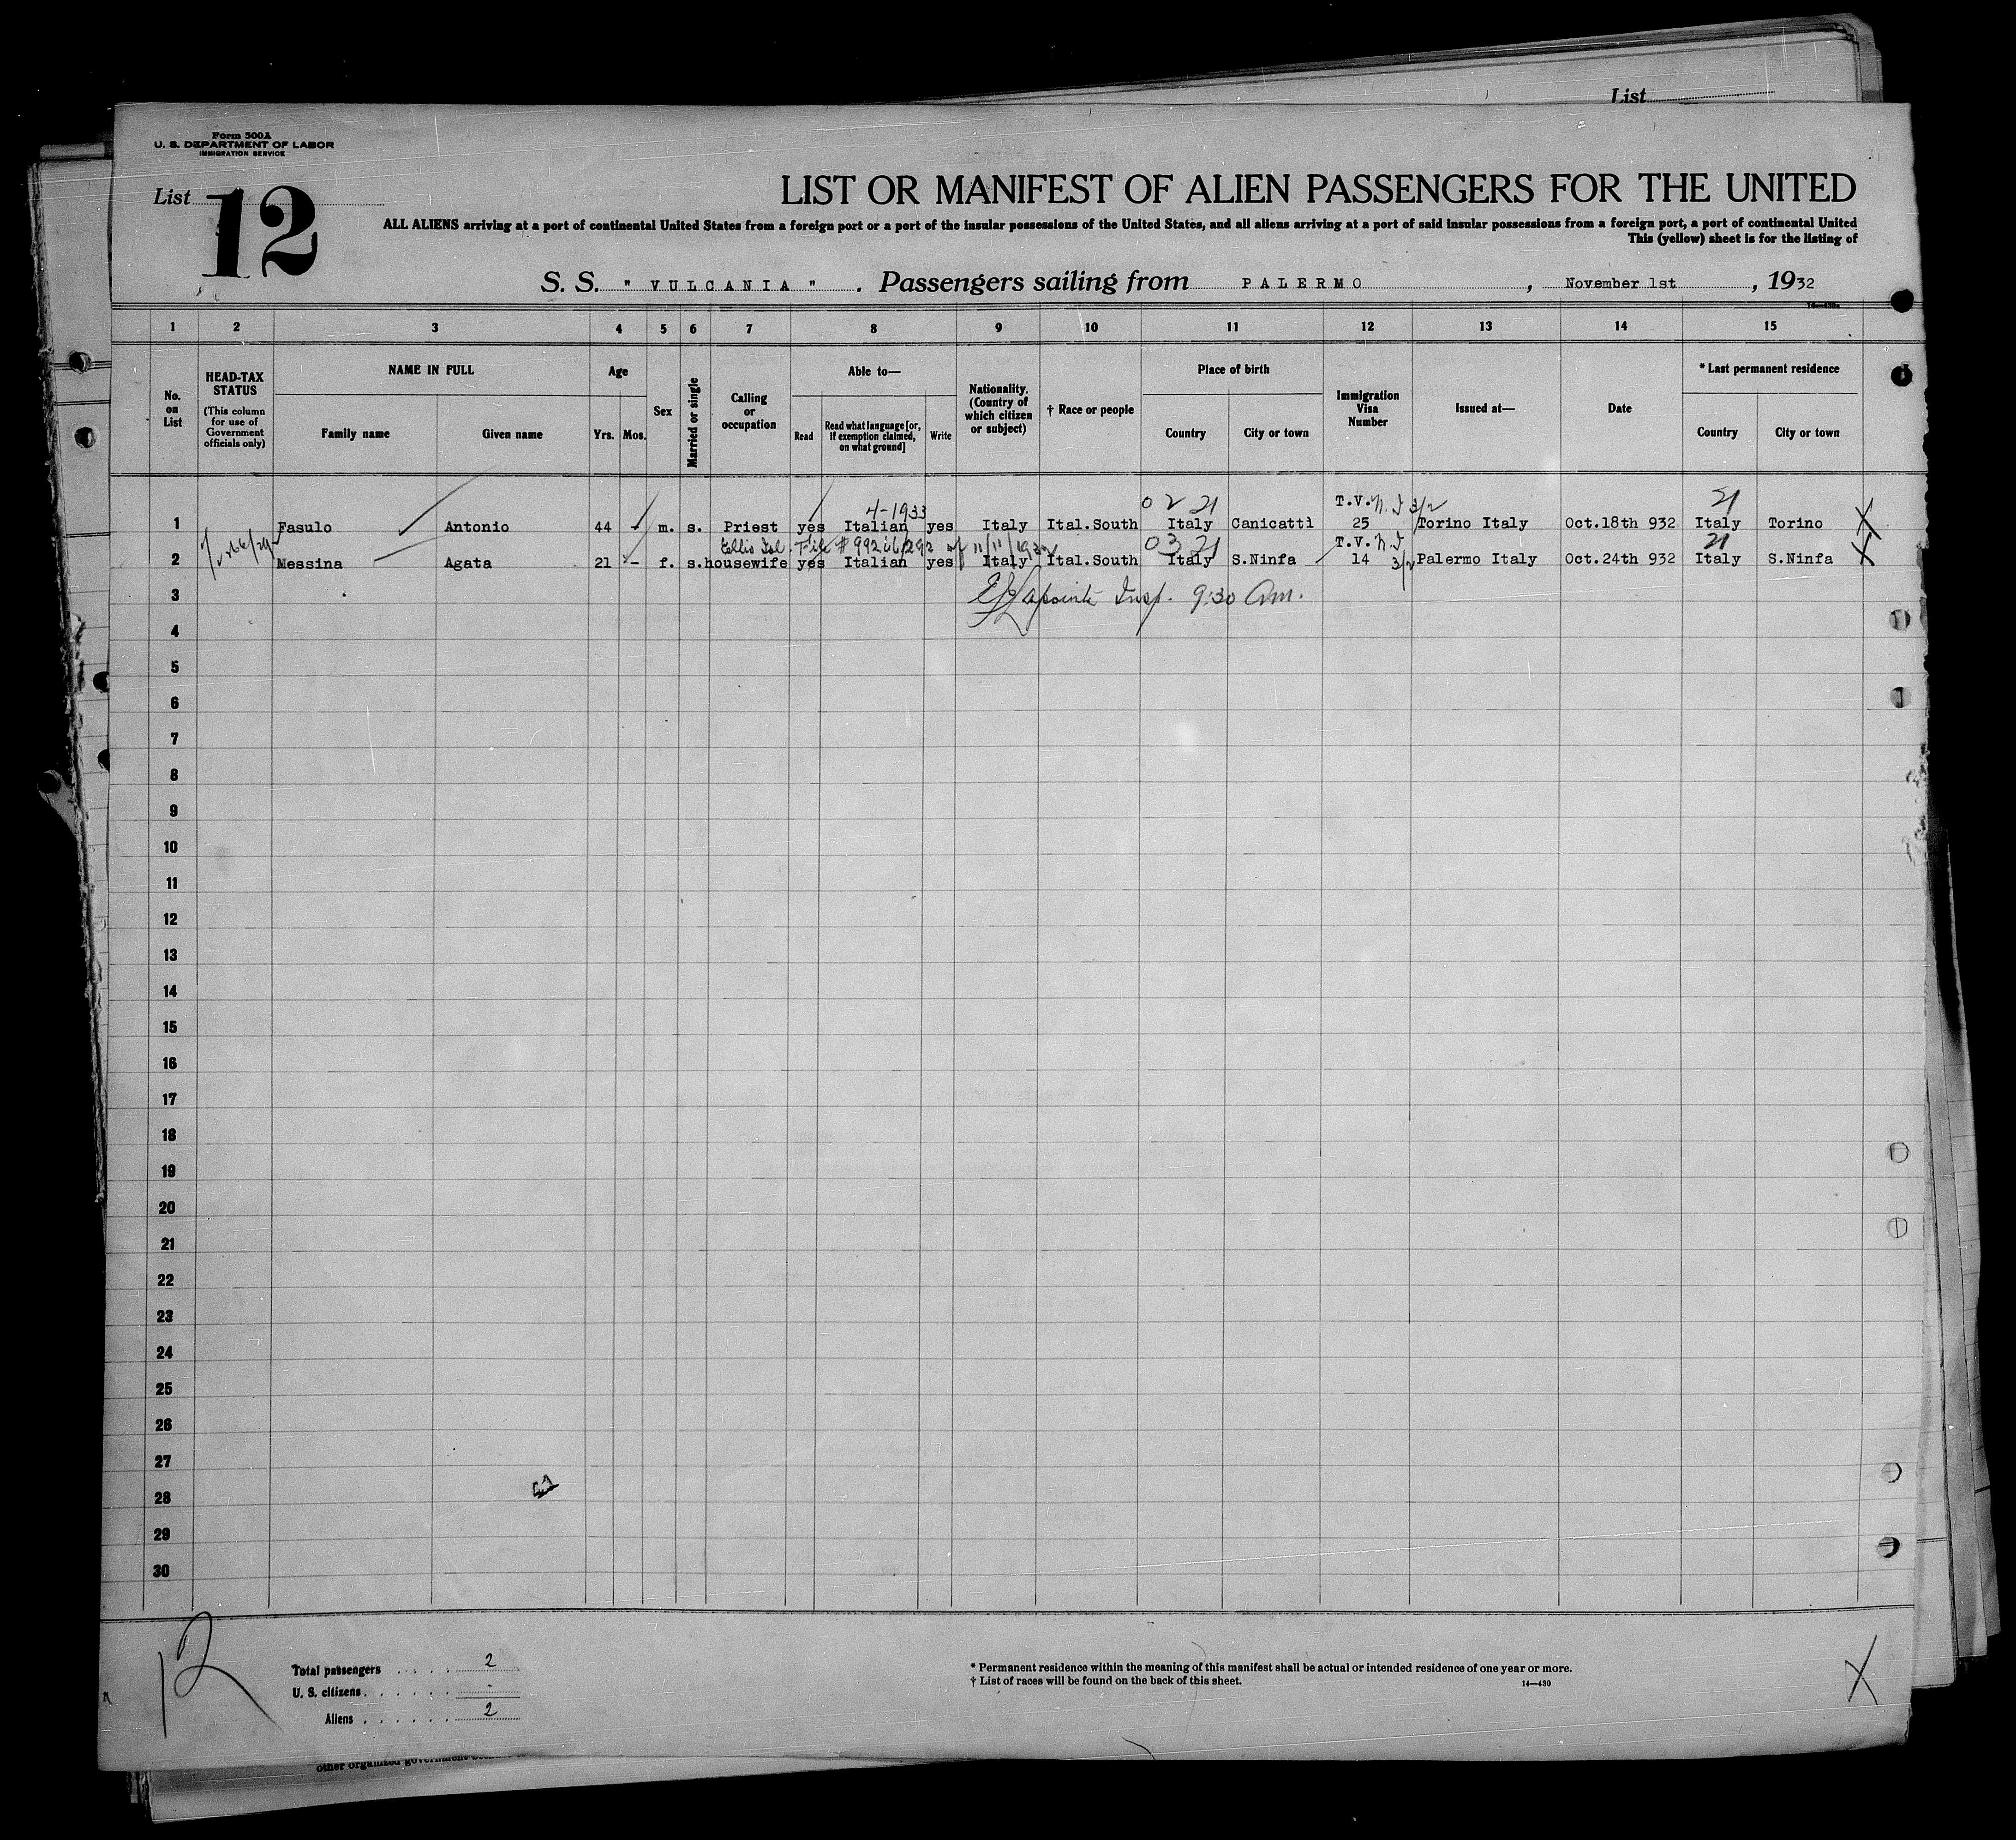 List
Form 500A
U. S. DEPARTMENT OF LABOR
IMMIGRATION SERVICE
List 12
LIST OR MANIFEST OF ALIEN PASSENGERS FOR THE UNITED
ALL ALIENS arriving at a port of continental United States from a foreign port or a port of the insular possessions of the United States, and all aliens arriving at a port of said insular possessions from a foreign port, a port of continental United
This (yellow) sheet is for the listing of
S. S. " VULCANIA ". Passengers sailing from PALERMO, November 1st, 1932
14—430a
1 2 3 4 5 6 7 8 9 10 11 12 13 14 15
No. on List
HEAD-TAX STATUS
(This column for use of Government officials only)
NAME IN FULL
Family name Given name
Age
Yrs. Mos.
Sex
Married or single
Calling or occupation
Able to—
Read
Read what language [or, if exemption claimed, on what ground]
Write
Nationality. (Country of which citizen or subject)
† Race or people
Place of birth
Country City or town
Immigration Visa Number
Issued at—
Date
* Last permanent residence
Country City or town
4-1933 0 2 21 T.V. N.I 3/2 21
1 Fasulo Antonio 44 - m. s. Priest yes Italian yes Italy Ital.South Italy Canicattì 25 Torino Italy Oct.18th 932 Italy Torino X
Ellis Isl. File # 99266/292 of 11/11/1932 03 21 T.V. N.I 21
2 Messina Agata 21 - f. s. housewife yes Italian yes Italy Ital.South Italy S.Ninfa 14 3/2 Palermo Italy Oct.24th 932 Italy S.Ninfa X
3 Lapointe Insp. 9:30 Am.
4
5
6
7
8
9
10
11
12
13
14
15
16
17
18
19
20
21
22
23
24
25
26
27
28
29
30
12
Total passengers . . . . . 2
U. S. citizens . . . . . . -
Aliens . . . . . . 2
* Permanent residence within the meaning of this manifest shall be actual or intended residence of one year or more.
† List of races will be found on the back of this sheet.
14—430
X
other organized government